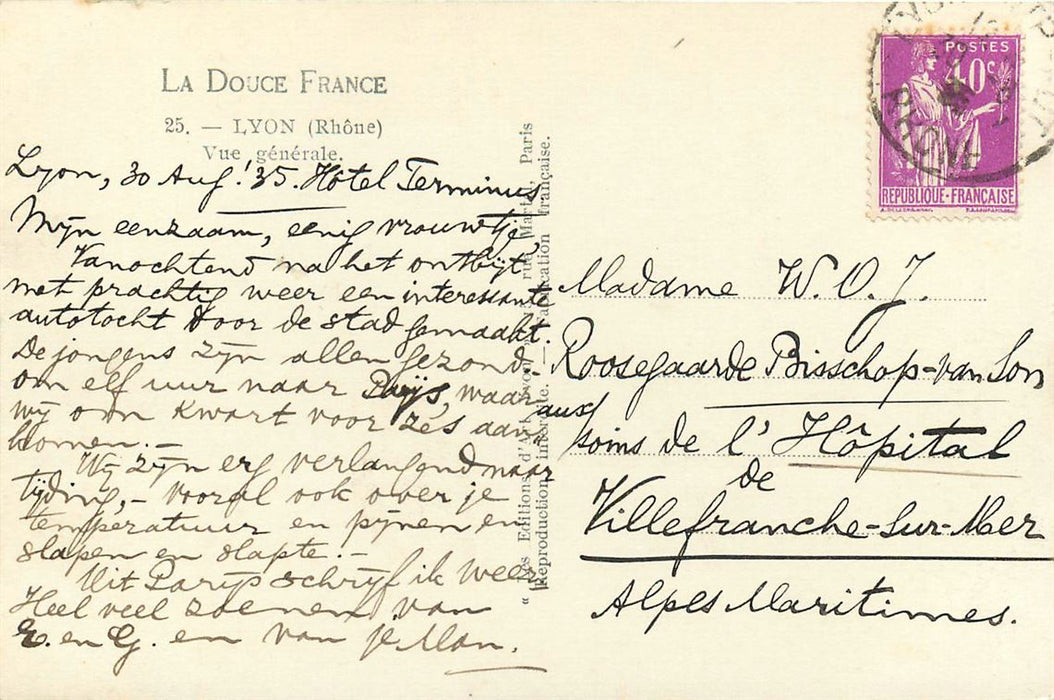 LA DOUCE FRANCE
25. — LYON (Rhône)
Vue générale.
Lyon, 30 Aug! 35. Hôtel Terminus
Mijn eenzaam, eenig vrouwtje,
Vanochtend na het ontbijt
met prachtig weer een interessante
autotocht door de stad gemaakt.
De jongens zijn allen gezond.-
om elf uur naar Parijs, waar
wij om kwart voor zes aan-
komen.-
Wij zijn erg verlangend naar
tijding,- vooral ook over je
temperatuur en pijnen en
slapen en slapte.-
Uit Parijs schrijf ik weer
Heel veel zoenen van
E. en G. en van je Man.
“ Les Editions d'Art rue Paris
Reproduction interdite. — française.
POSTES
40c
REPUBLIQUE·FRANÇAISE
RHONE
Madame W. O. J.
Roosegaarde Bisschop-van Son
aux soins de l'Hôpital
de
Villefranche-sur-Mer
Alpes Maritimes.